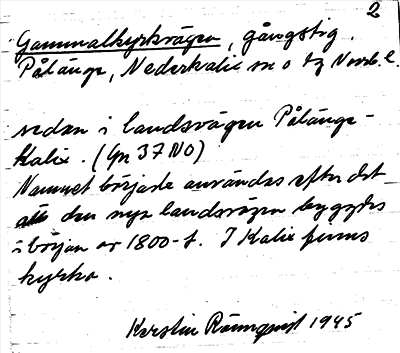 2
Gammalkyrkvägen, gångstig.
Pålänge, Nederkalix sn o tg Norrb. l.
sedan i landsvägen Pålänge-
Kalix. (Gn 37 NO)
Namnet började användas efter det
att den nya landsvägen byggdes
i början av 1800-t. I Kalix finns
kyrka.
Kerstin Rönnqvist 1945